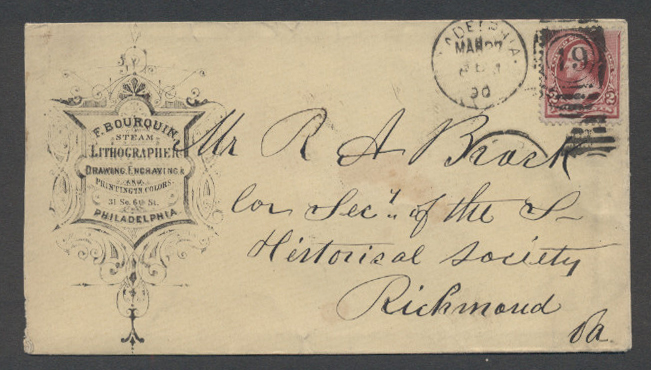 F. BOURQUIN,
STEAM
LITHOGRAPHER
DRAWING, ENGRAVING &
PRINTING IN COLORS.
31 So. 6th St.
PHILADELPHIA
ADELPHIA
MAR 27
90
Mr R A Brock
Cor Sec'y. of the S-
Historical Society
Richmond
Va.